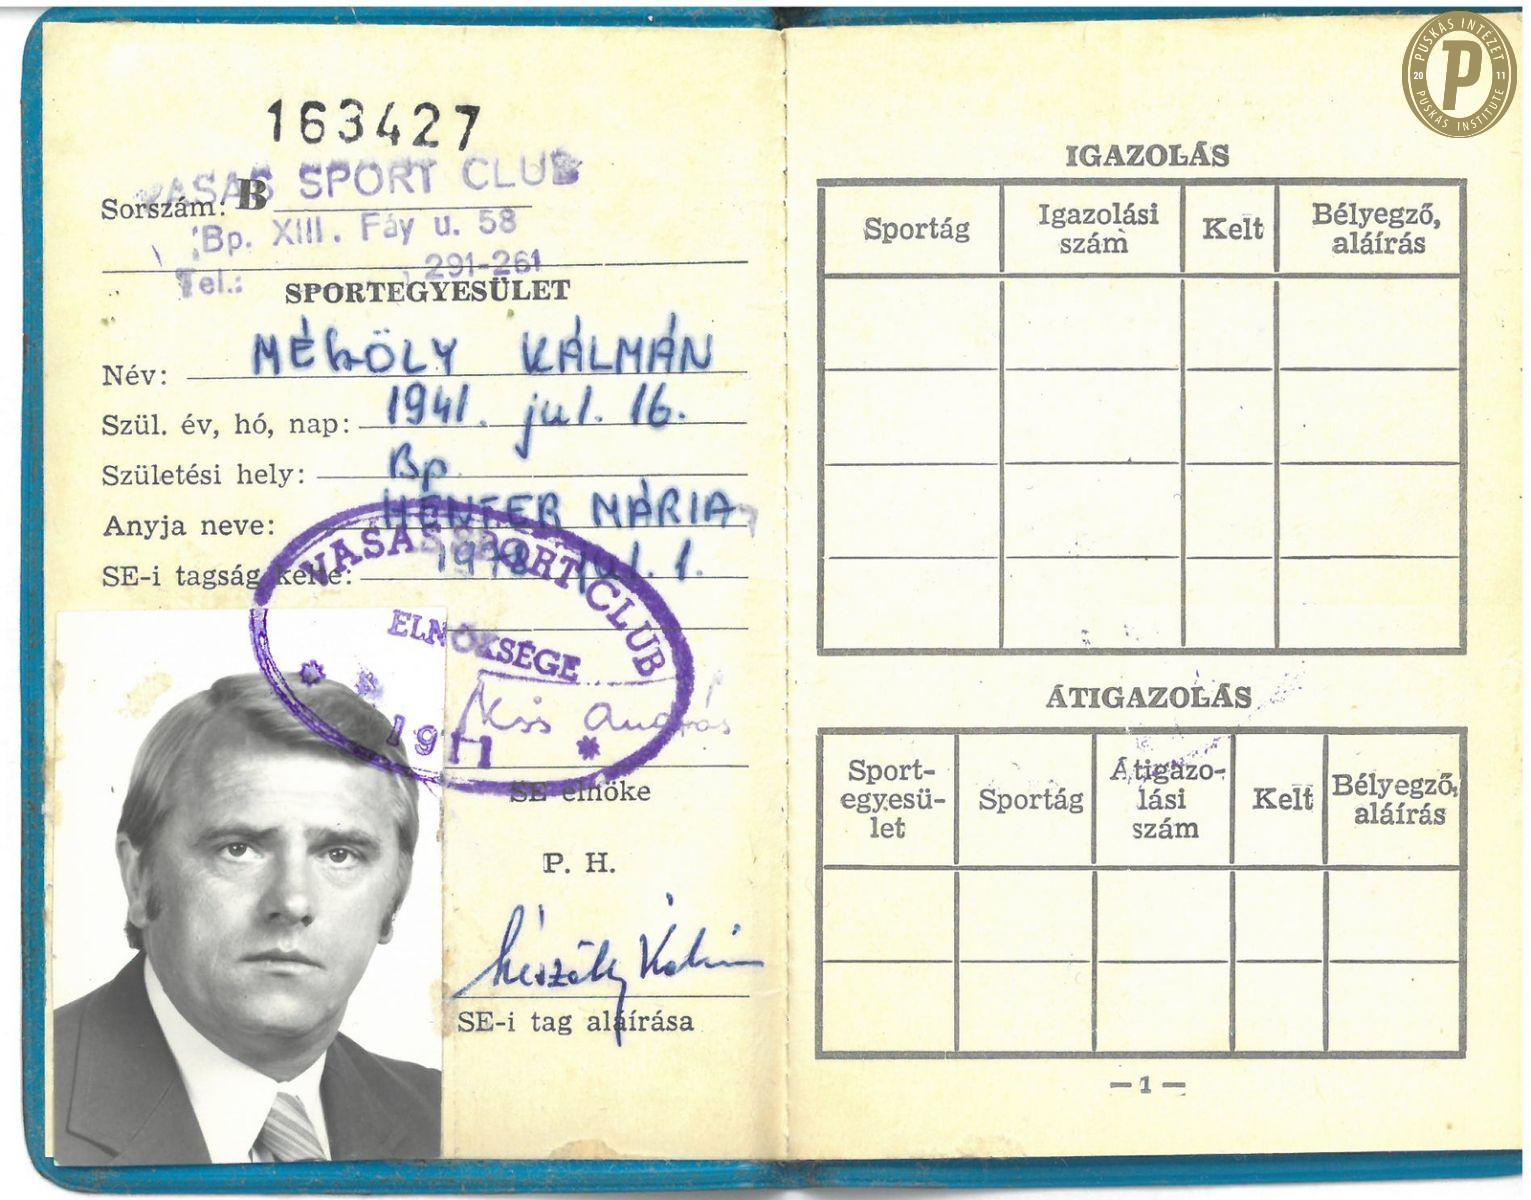 163427
VASAS SPORT CLUB
Sorszám: B
Bp. XIII. Fáy u. 58
Tel.: 291-261
SPORTEGYESÜLET
Név: MÉSZÖLY KÁLMÁN
Szül. év, hó, nap: 1941. jul. 16.
Születési hely: Bp.
Anyja neve: HENFER MÁRIA
SE-i tagság kelte: 1978
VASAS SPORT CLUB
ELNÖKSÉGE
1911
Kiss András
SE elnöke
P. H.
Mészöly Kálmán
SE-i tag aláírása
PUSKÁS INTÉZET
20 P 11
PUSKÁS INSTITUTE
IGAZOLÁS
Sportág Igazolási szám Kelt Bélyegző, aláírás
ÁTIGAZOLÁS
Sport-egyesü-let Sportág Átigazo-lási szám Kelt Bélyegző, aláírás
— 1 —